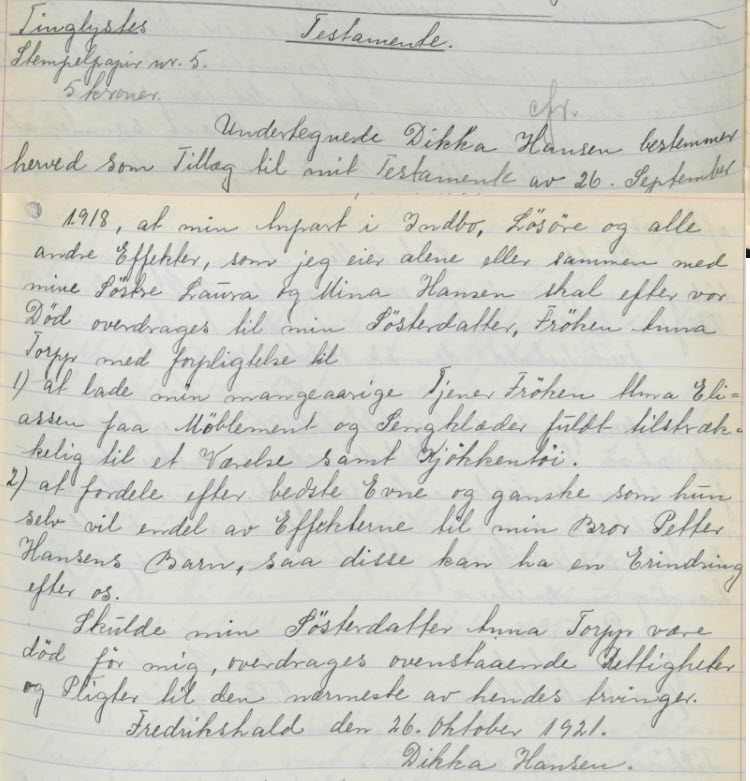 Tinglystes
Testamente.
Stempelpapir nr. 5.
5 kroner.
cfr.
Undertegnede Dikka Hansen bestemmer
herved som Tillæg til mit Testamente av 26. September
1918, at min Anpart i Indbo, Lösöre og alle
andre Effekter, som jeg eier alene eller sammen med
mine Söstre Laura og Mina Hansen skal efter vor
Död overdrages til min Sösterdatter, Fröken Anna
Torpp med forpligtelse til
1) at lade min mangeaarige Tjener Fröken Alma Eli=
assen faa Möblement og Sengklæder fuldt tilstræk=
kelig til et Værelse samt Kjökkentöi.
2) at fordele efter bedste Evne og ganske som hun
selv vil endel av Effekterne til min Bror Petter
Hansens Barn, saa disse kan ha en Erindring
efter os.
Skulde min Sösterdatter Anna Torpp være
död för mig, overdrages ovenstaaende Rettigheter
og Pligter til den nærmeste av hendes Arvinger.
Fredrikshald den 26. Oktober 1921.
Dikka Hansen.